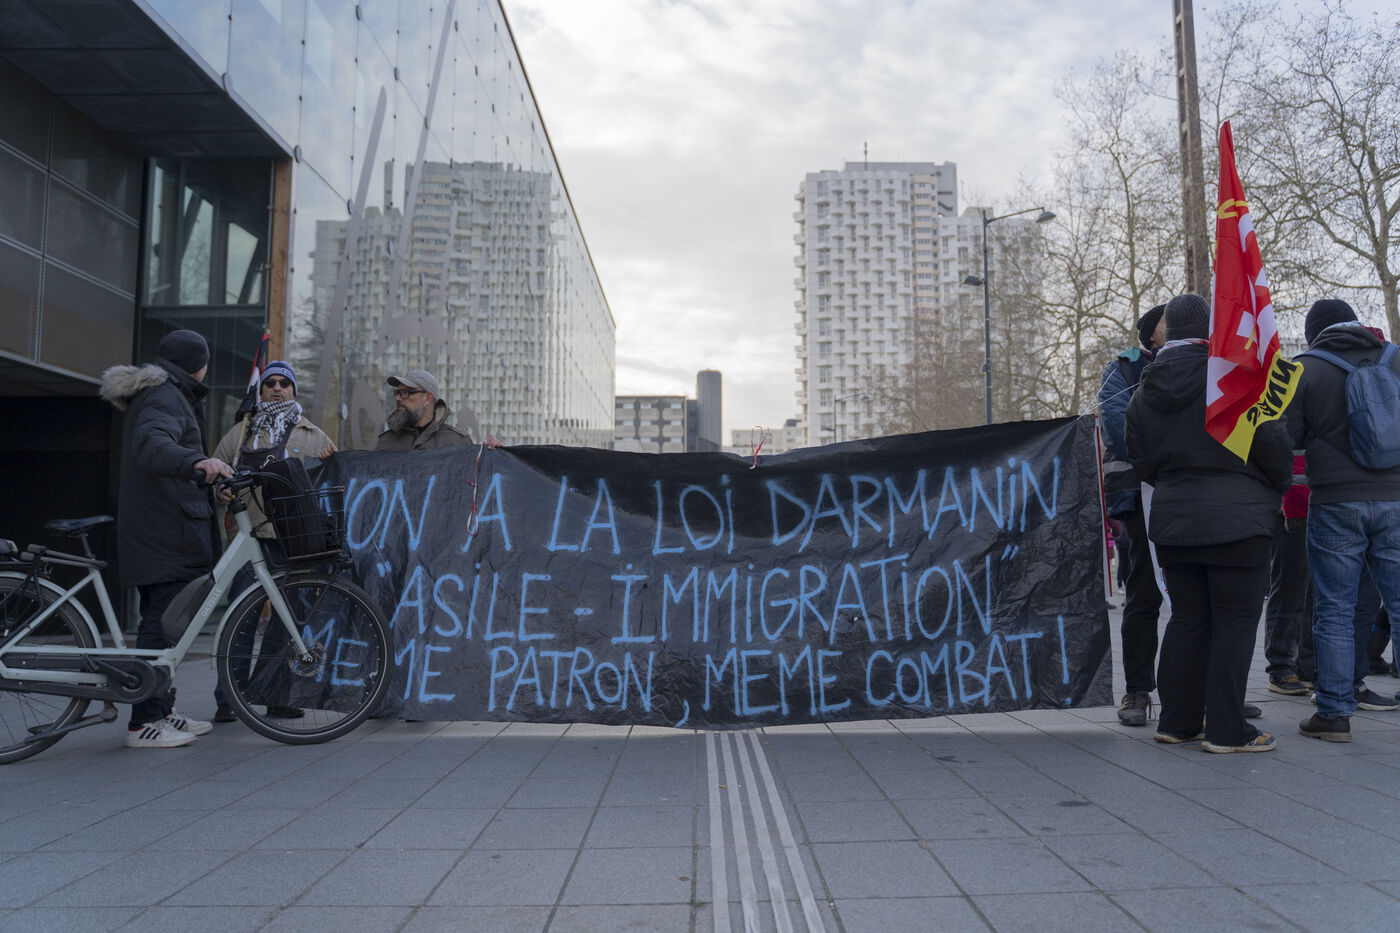 NON A LA LOi DARMANiN
"ASILE - IMMiGRATiON"
MEME PATRON, MEME COMBAT !